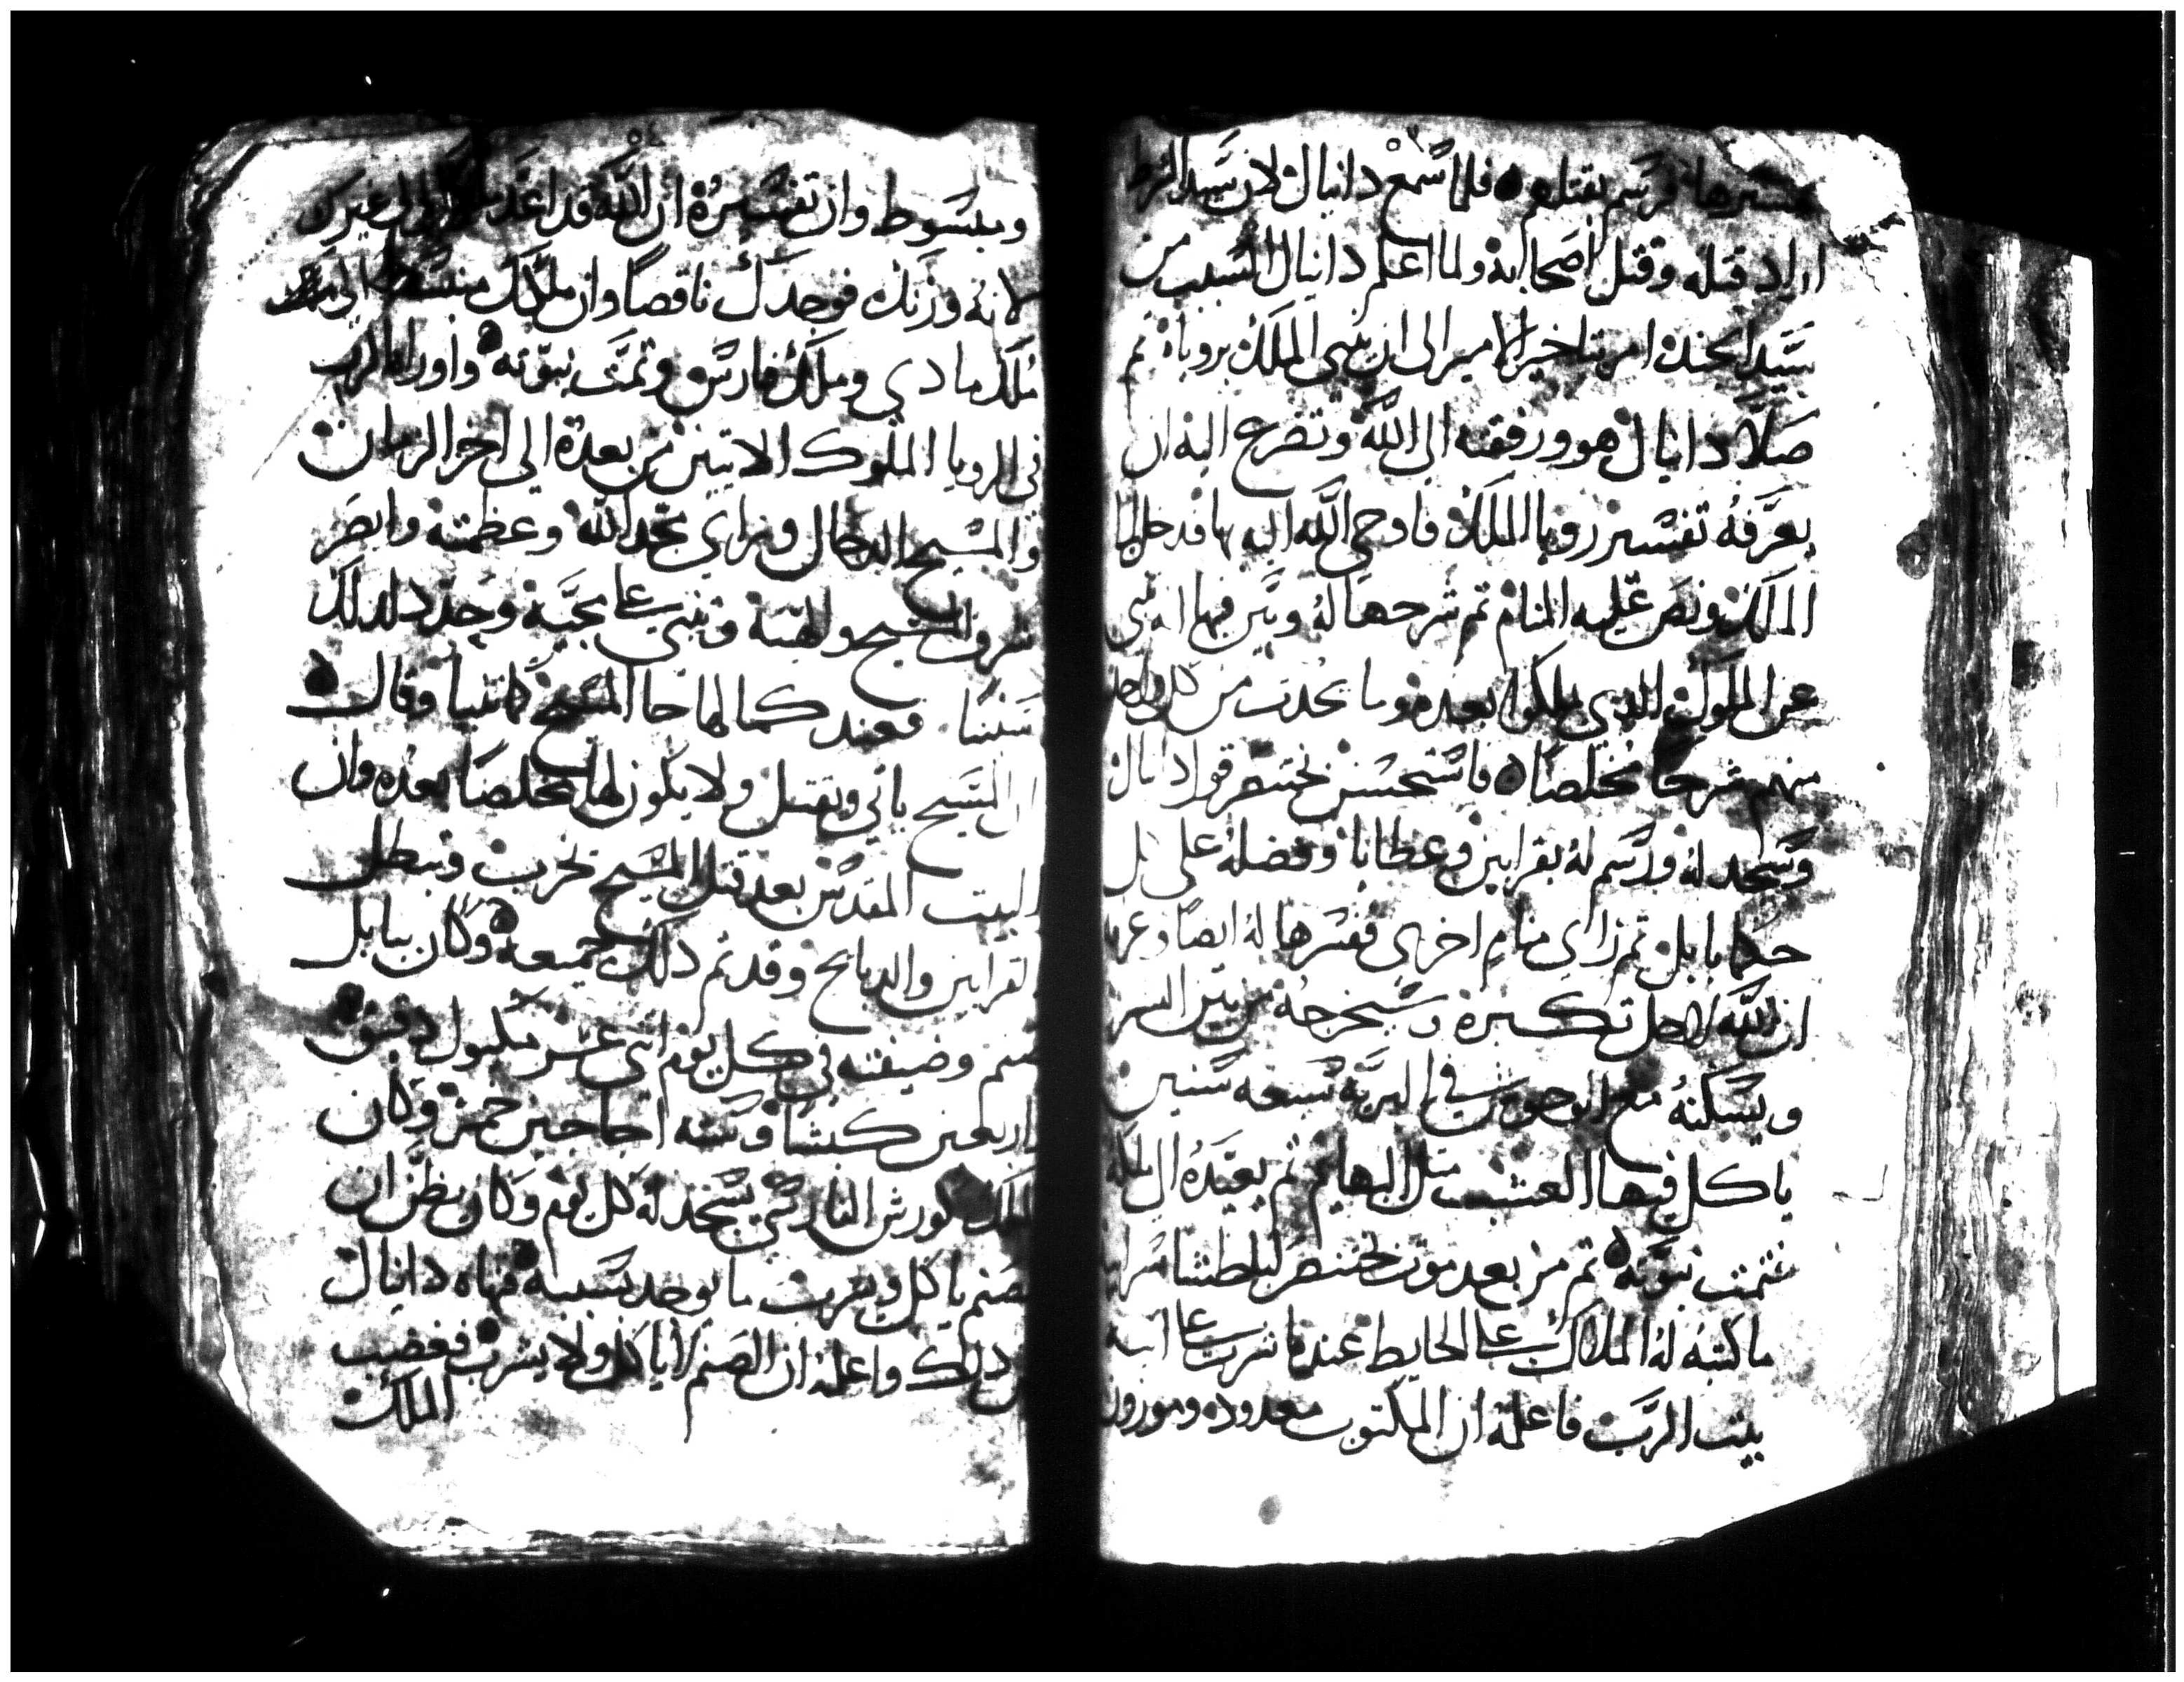 فرسم بقتلهم فلما سمع دانيال لان سيد الشرط
اراد قتله وقتل اصحابه ولما اعلم دانيال السبب من
سيد الجند امر بتاخير الامر الى ان ينبي الملك بروياه ثم
صلا دانيال هو ورفقته الى الله وتضرع اليه ان
يعرفه تفسير رويا الملك فاوحى الله اليه بها فدخل الى
الملك ونص عليه المنام ثم شرحها له وبين فيها انه ينبي
عن الملوك الذي يملكوا بعده وما يحدث من كل واحد
منهم شرحا مخلصا فاستحسن بختنصر قول دانيال
وسجد له ورسم له بقرابين وعطايا وفضله على كل
حكما بابل ثم راى منام اخرى ففسرها له ايضا وعرفه
ان الله لاجل تكبره سيخرجه من بين البشر
ويسكنه مع الوحوش في البرية سبعه سنين
ياكل فيها العشب مثل البهايم ثم يعيده الى ملكه
فتمت نبوته ثم من بعد موت بختنصر لبلطشاسر
ما كتبه له الملاك على الحايط عندما شرب على انية
بيت الرب فاعلمه ان المكتوب معدوده وموزون
وبسوط وان تفسيره ان الله قد اعد غيرك
لانه وزنك فوجدك ناقصا وان ملكك منقسم الى
ملك مادي وملك فارس وتمت نبوته واوراه الرب
في الرويا الملوك الاتيين من بعده الى اخر الزمان
والمسيح الدجال وراي مجد الله وعظمته وابصر
شرف المسيح ولقبه وتنبى على مجيه وحدد لذلك
سنينا فعند كمالها جا المسيح كما تنبا وقال
ان المسيح ياتي ويقتل ولا يكون لها مخلصا بعده وان
البيت المقدس بعد قتل المسيح يخرب وتبطل
القرابين والدبايح وقد تم ذلك جميعه وكان ببابل
صنم وضيفته في كل يوم اثني عشر مكيول دقيق
واربعين كبشا وسته اجاجين خمر وكان
الملك كورش الفارسي يسجد له كل يوم وكان يظن ان
الصنم ياكل ويشرب ما يوجد بسببه فنهاه دانيال
عن ذلك واعلمه ان الصنم لا ياكل ولا يشرب فغضب
الملك